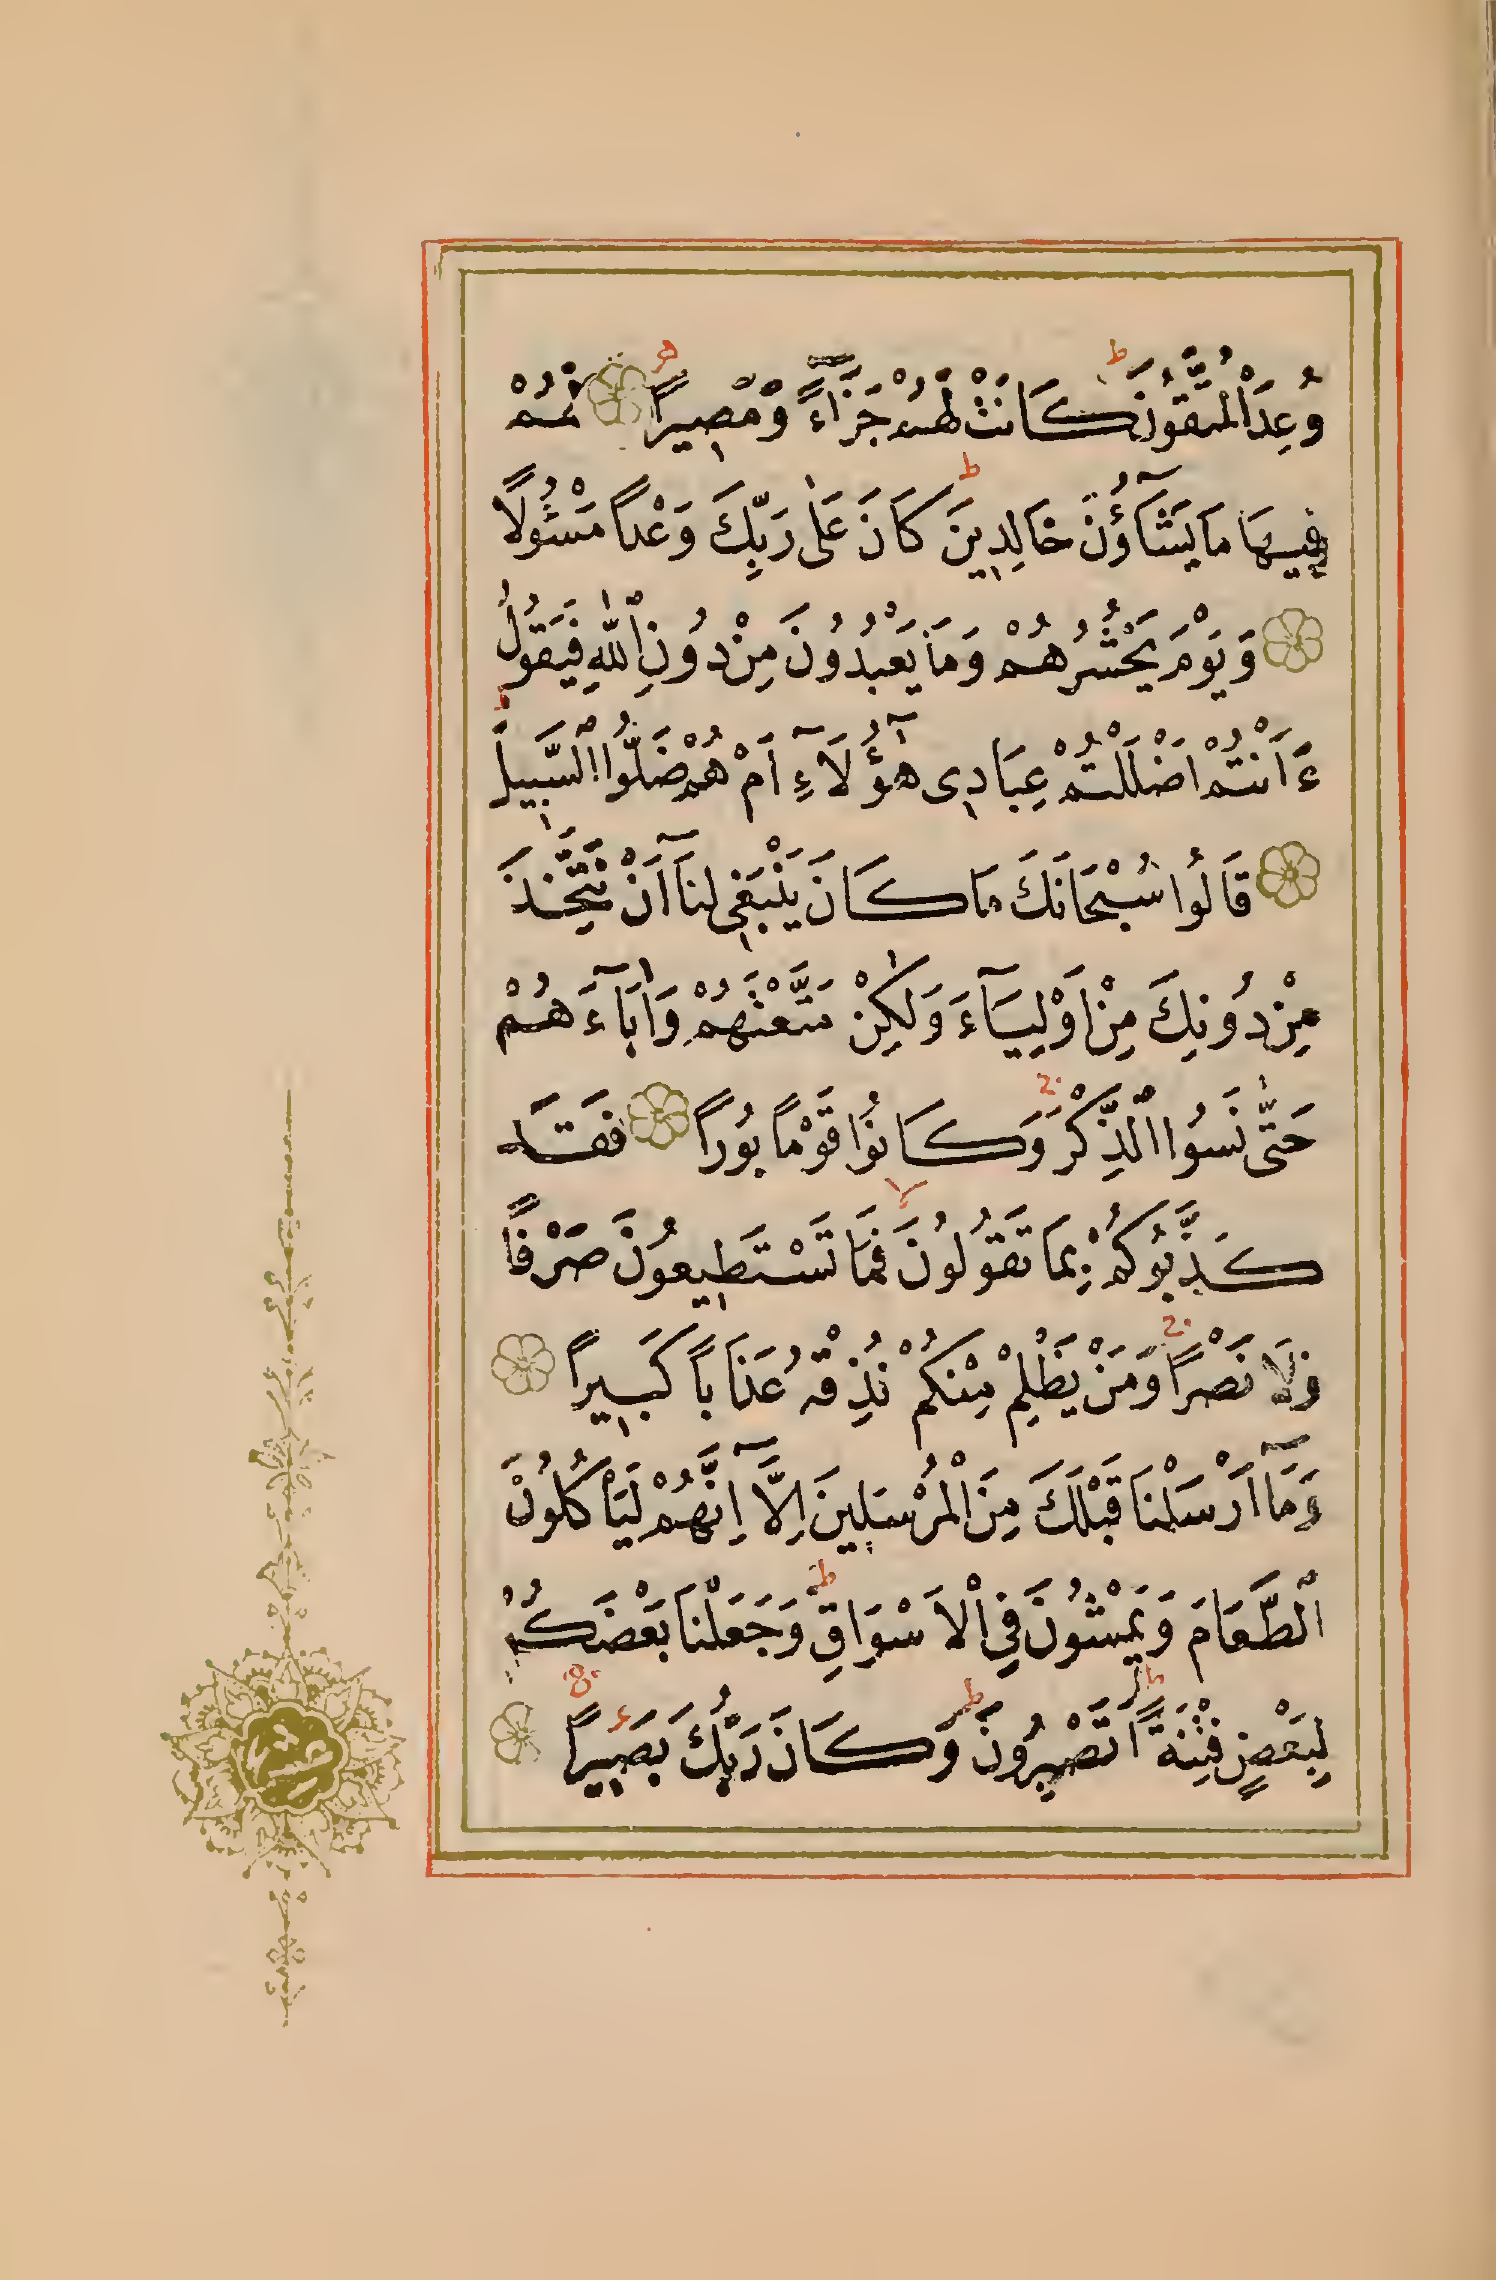 وُعِدَ الْمُتَّقُونَ كَانَتْ لَهُمْ جَزَآءً وَمَصِيرًا لَهُمْ
فِيهَا مَا يَشَآؤُنَ خَالِدِينَ كَانَ عَلٰى رَبِّكَ وَعْدًا مَسْئُولًا
وَيَوْمَ يَحْشُرُهُمْ وَمَا يَعْبُدُونَ مِنْ دُونِ اللّٰهِ فَيَقُولُ
ءَاَنْتُمْ اَضْلَلْتُمْ عِبَادِى هٰٓؤُلَآءِ اَمْ هُمْ ضَلُّوا السَّبِيلَ
قَالُوا سُبْحَانَكَ مَا كَانَ يَنْبَغِى لَنَآ اَنْ نَتَّخِذَ
مِنْ دُونِكَ مِنْ اَوْلِيَآءَ وَلٰكِنْ مَتَّعْتَهُمْ وَاٰبَآءَهُمْ
حَتّٰى نَسُوا الذِّكْرَ وَكَانُوا قَوْمًا بُورًا فَقَدْ
كَذَّبُوكُمْ بِمَا تَقُولُونَ فَمَا تَسْتَطِيعُونَ صَرْفًا
وَلَا نَصْرًا وَمَنْ يَظْلِمْ مِنْكُمْ نُذِقْهُ عَذَابًا كَبِيرًا
وَمَآ اَرْسَلْنَا قَبْلَكَ مِنَ الْمُرْسَلِينَ اِلَّآ اِنَّهُمْ لَيَاْكُلُونَ
الطَّعَامَ وَيَمْشُونَ فِى الْاَسْوَاقِ وَجَعَلْنَا بَعْضَكُمْ
لِبَعْضٍ فِتْنَةً اَتَصْبِرُونَ وَكَانَ رَبُّكَ بَصِيرًا